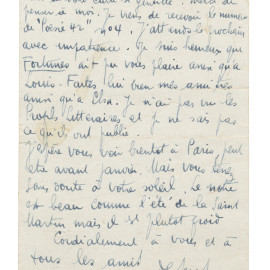 penser à moi. Je viens de recevoir le numéro
de "Poésie 42" n° 4. J'attends le prochain
avec impatience. Je suis heureux que
Fortunes ait pu vous plaire ainsi qu'à
Louis. Faites lui bien mes amitiés
ainsi qu'à Elsa. Je n'ai pas vu les
Profils littéraires et je ne sais pas
ce qu'ils ont publié.
J'espère vous voir bientôt à Paris, peut
être avant Janvier. Mais vous tenez
sans doute à votre soleil. Le notre
est beau comme l'été de la Saint
Martin mais il est plutot froid
Cordialement à vous et à
tous les amis